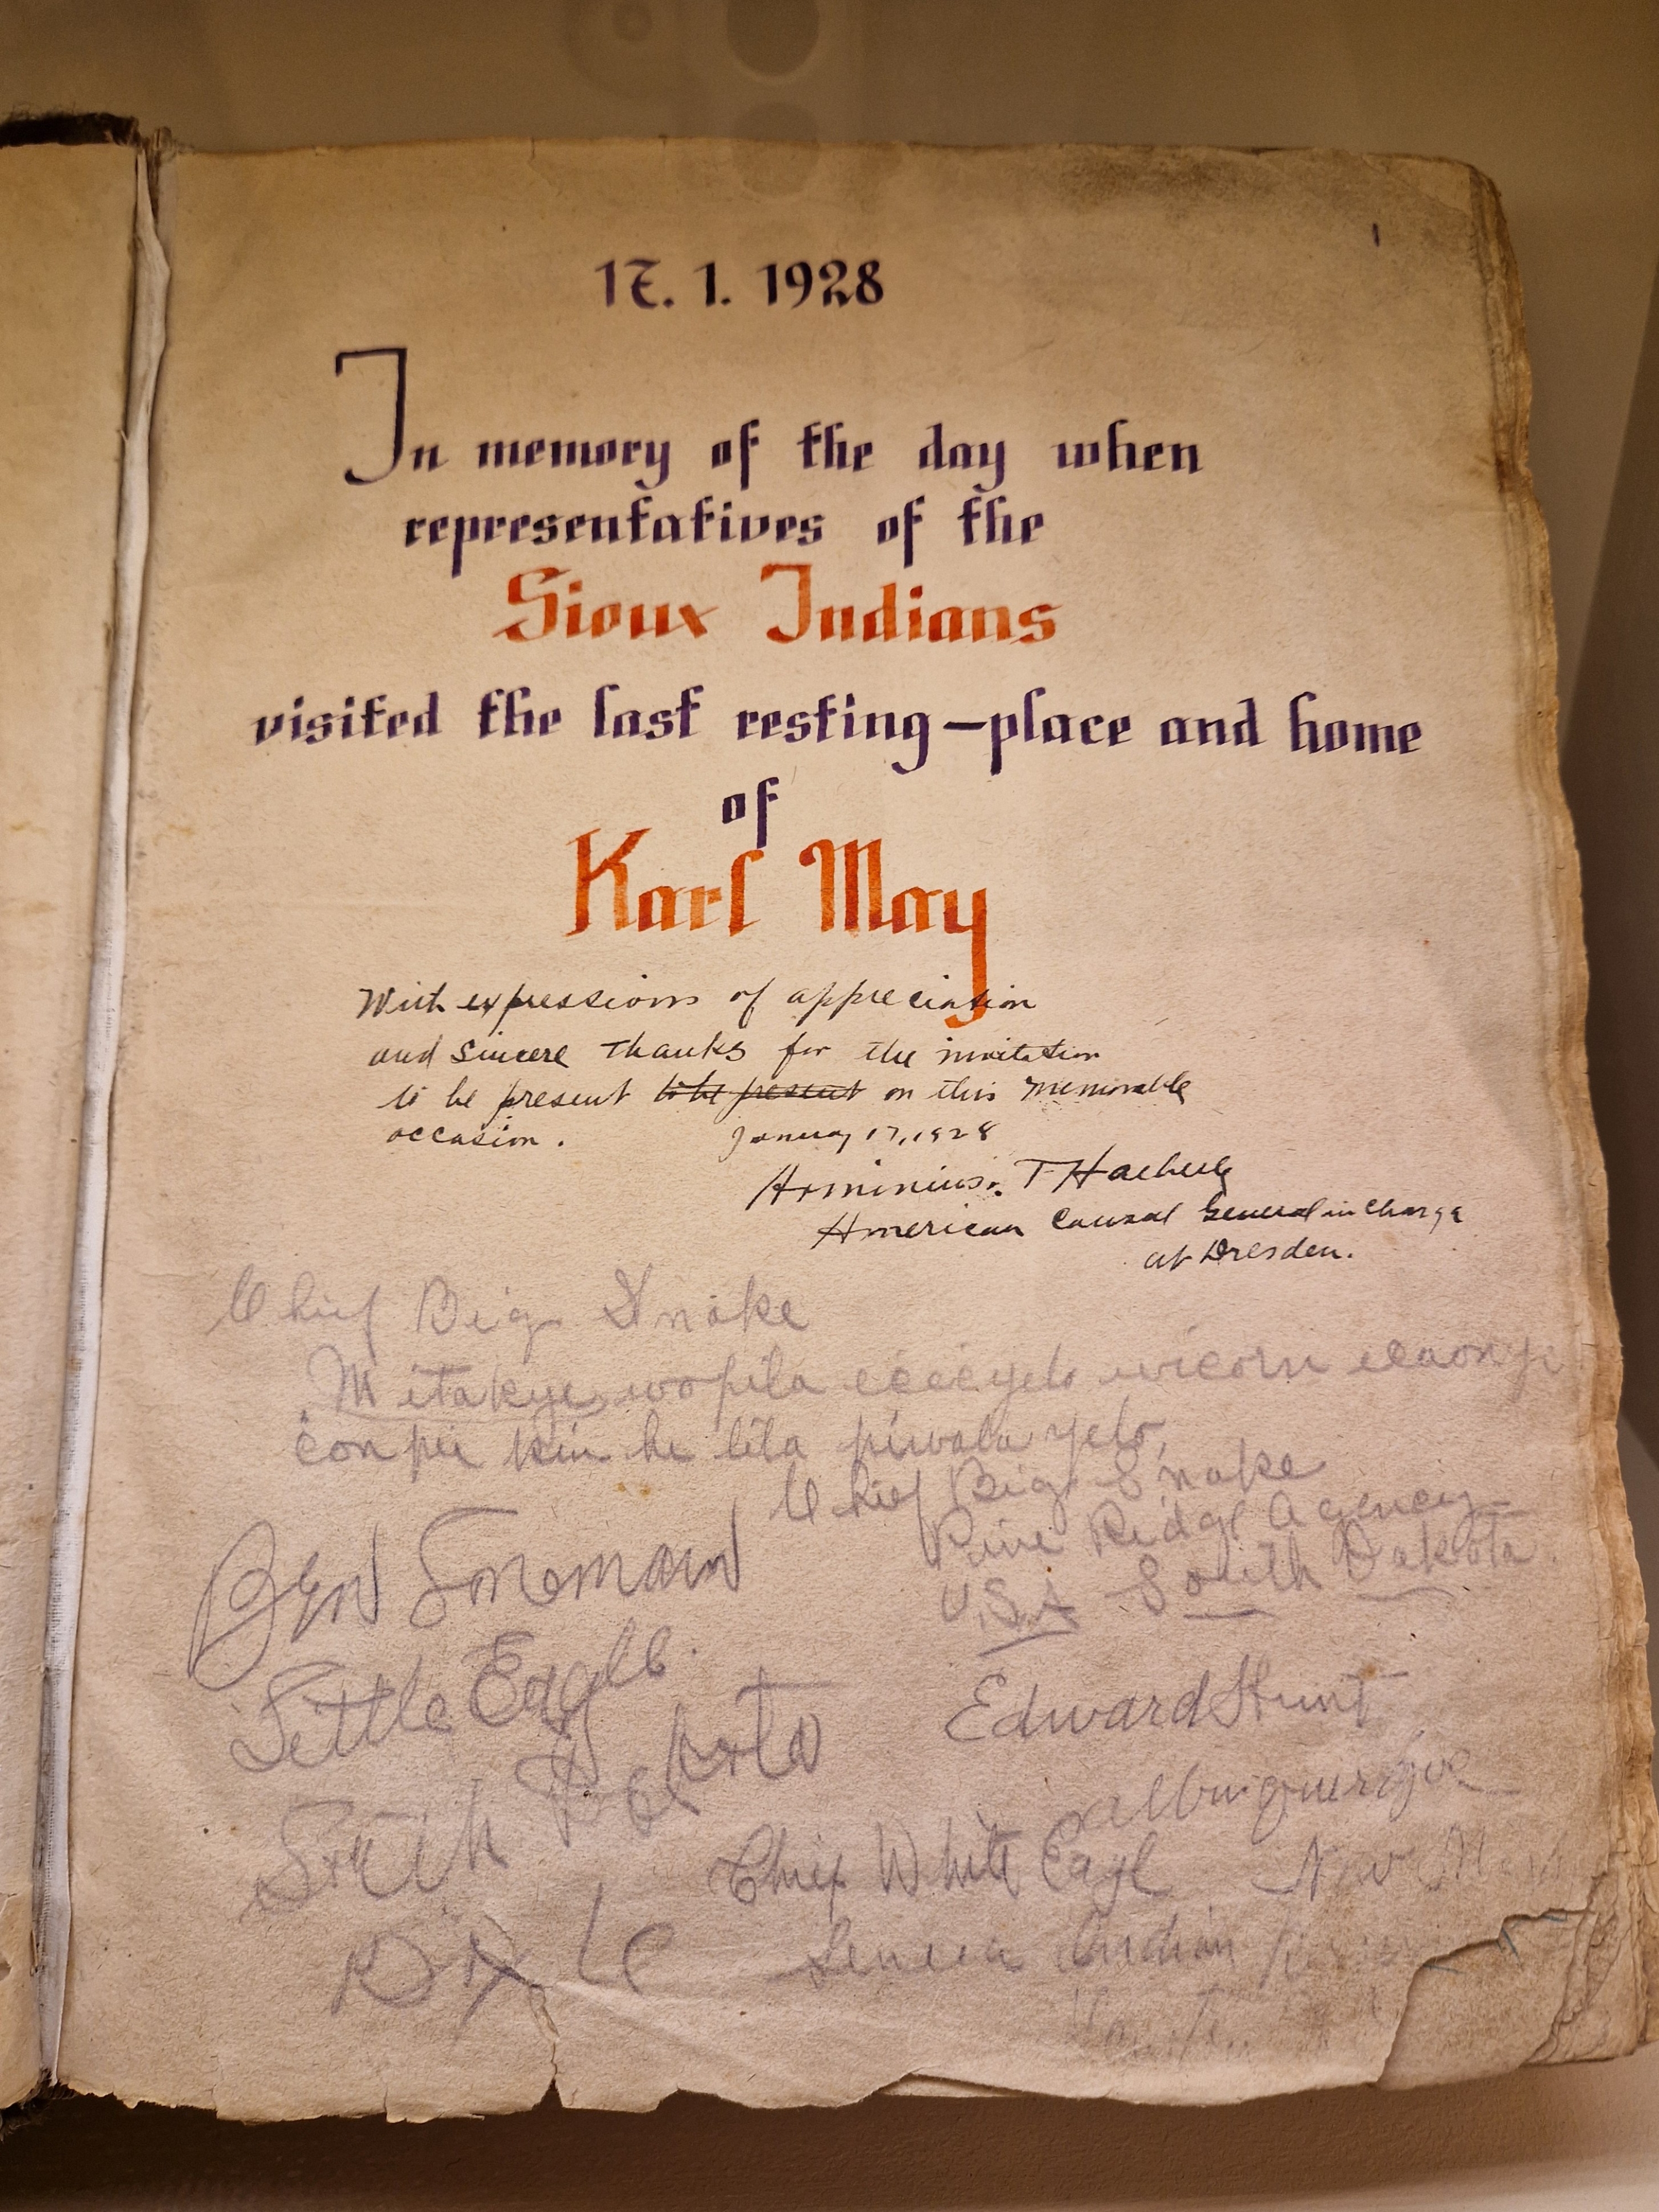 17. 1. 1928
In memory of the day when
representatives of the
Sioux Indians
visited the last resting-place and home
of
Karl May
With expressions of appreciation
and sincere thanks for the invitation
to be present to be present on this memorable
occasion. January 17, 1928
Arminius T Haeberle
American Consul General in Charge
at Dresden.
Chief Big Snake
Mitakuye wopila wicorn
conpi kin he lila piwala yelo,
Chief Big Snake
Pine Ridge Agency
U.S.A South Dakota.
Ben
Little Eagle.
South Dakota
Edward Hunt
Albuquerque
New Mex
Chief White Eagl
Seneca Indian